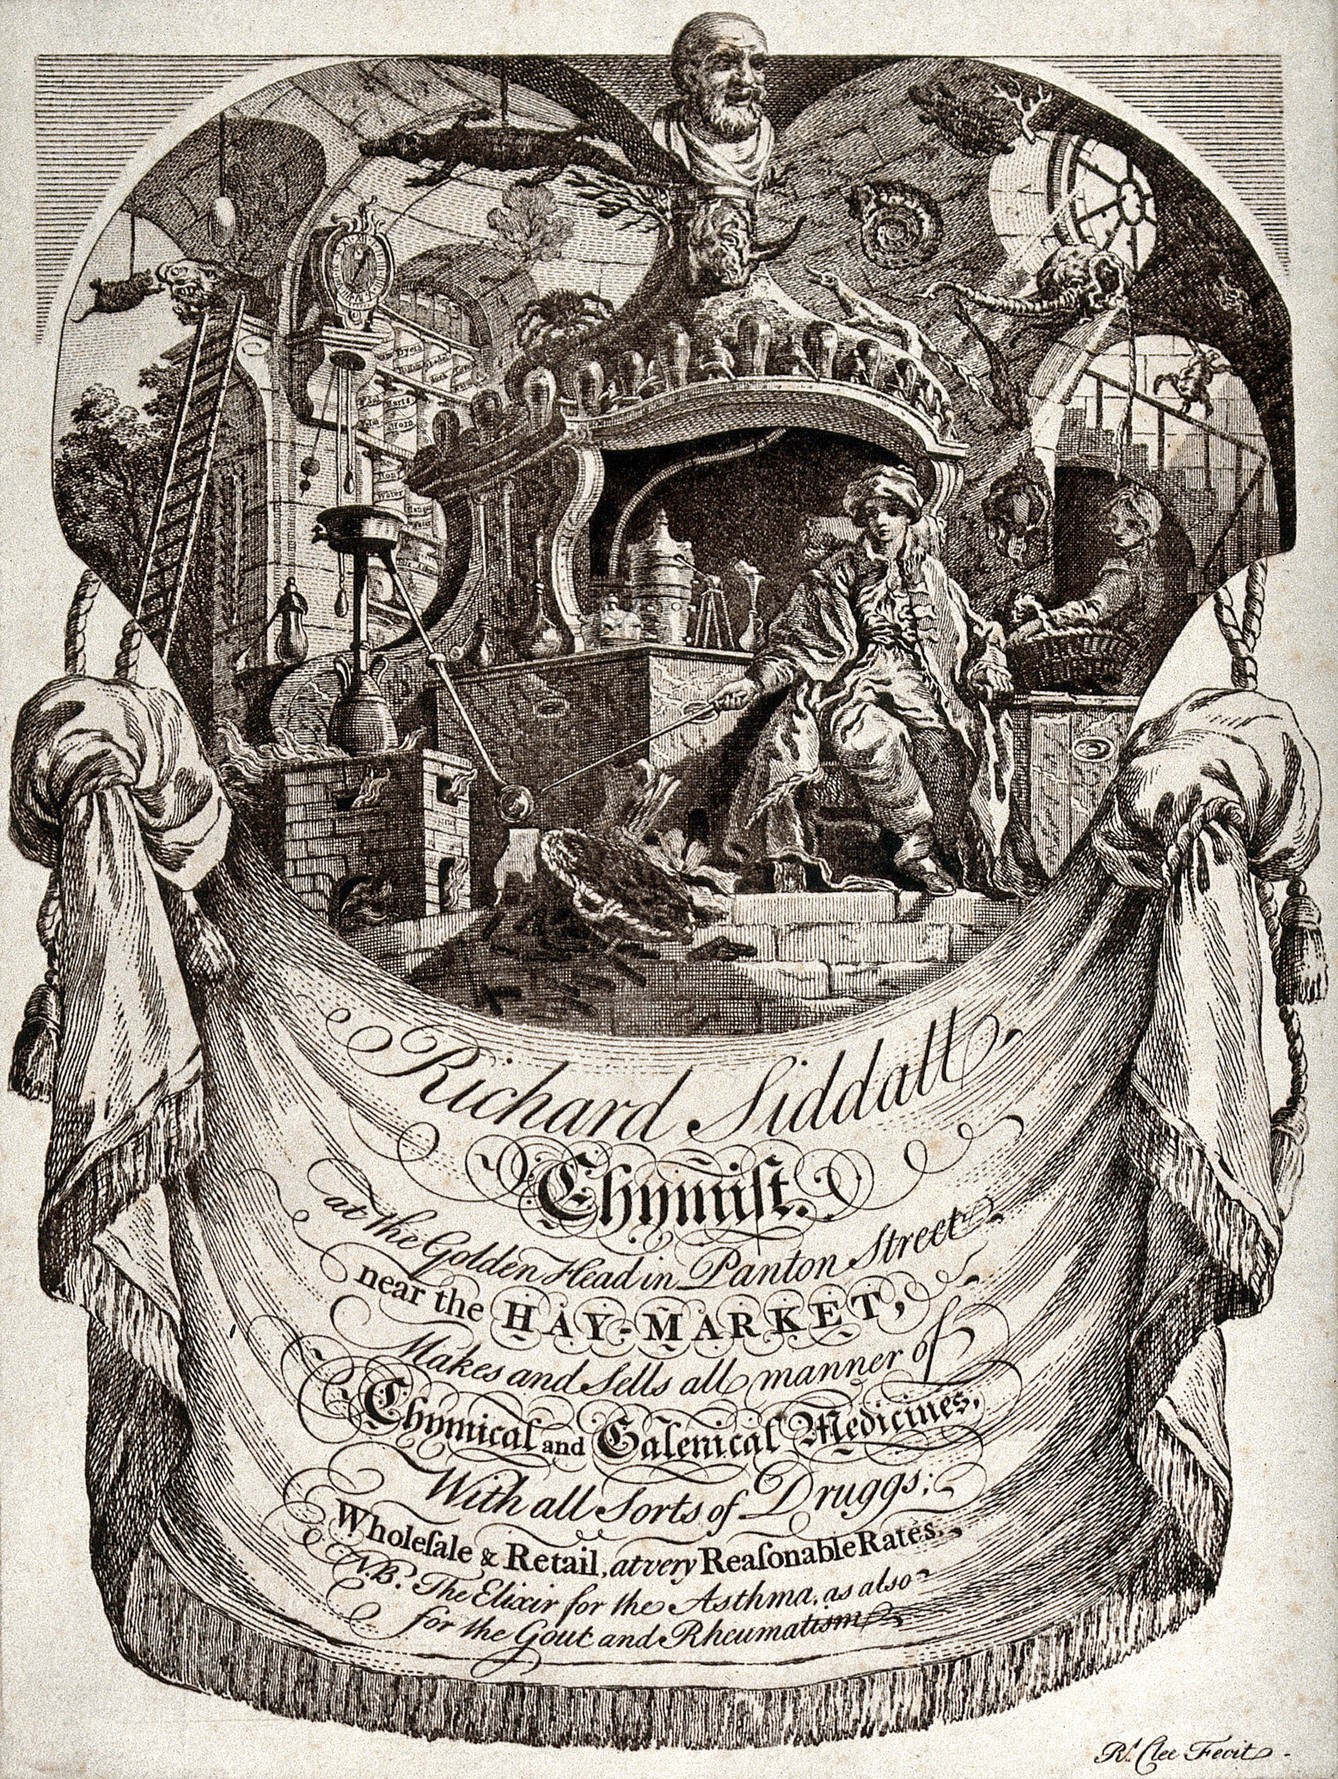 Richard Siddall
Chymiſt.
at the Golden Head in Panton Street
near the HAY-MARKET,
Makes and Sells all manner of
Chymical and Galenical Medicines,
With all Sorts of Druggs;
Wholeſale & Retail, at very Reaſonable Rates.
N.B. The Elixir for the Asthma, as also
for the Gout and Rheumatism
R.^d Clee Fecit